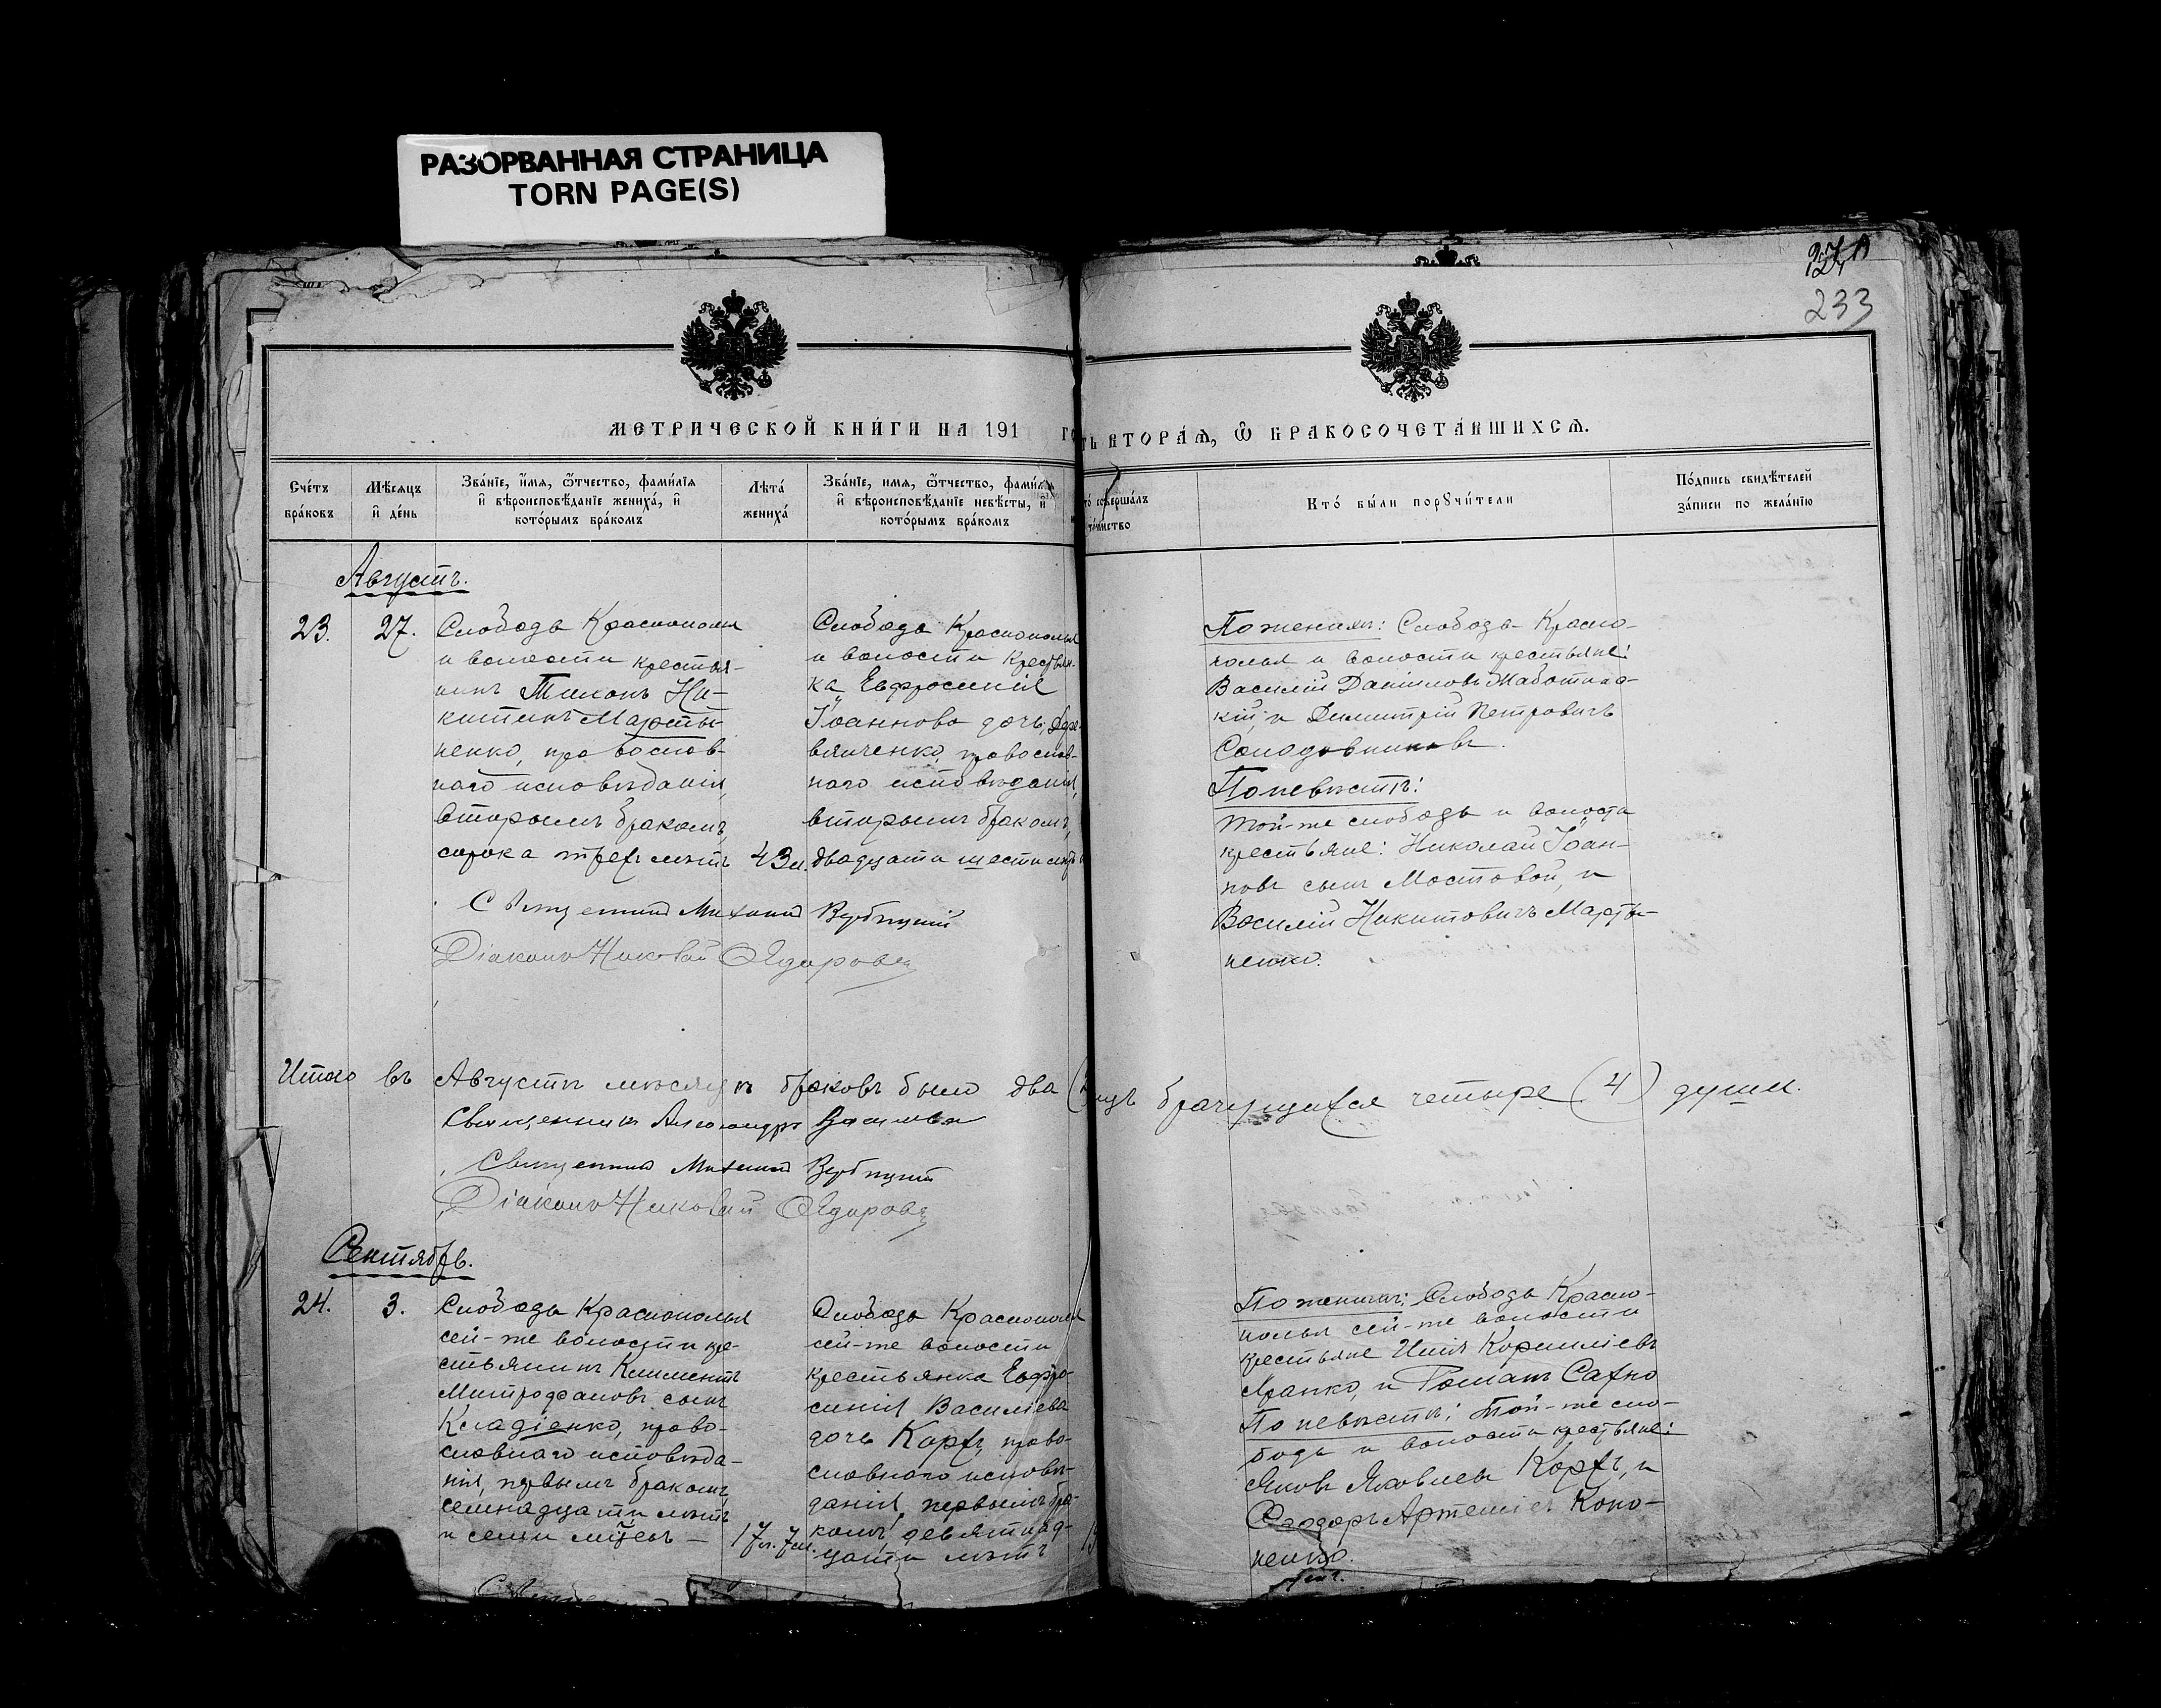 РАЗОРВАННАЯ СТРАНИЦА
TORN PAGE(S)
233
МЕТРИЧЕСКОЙ КНИ́ГИ НА 191
ВТОРА́Ѧ, Ѿ БРАКОСОЧЕТА́ВШИХСѦ.
Сче́тъ бра́ковъ
Мѣ́сяцъ и҆ де́нь
Зва́нїе, и҆́мя, ѻ҆́тчество, фами́лїя и҆ вѣроисповѣ́данїе жениха́, и҆ кото́рымъ бра́комъ
Лѣта̀ жениха́
Зва́нїе, имя, ѻ҆́тчество, фами́лїя и҆ вѣроисповѣ́данїе невѣ́сты, и҆ кото́рымъ бра́комъ
соверша́лъ
Кто́ бы́ли порꙋчи́тели
По́дпись свидѣ́телей за́писи по жела́нїю
Августъ.
23.
27.
Слободы Краснополья
и волости крестья-
нинъ Тихонъ Ни-
китинъ Марты-
ненко, православ-
наго исповѣданія,
вторымъ бракомъ,
сорока трехъ лѣтъ
43 л.
Слободы Краснополья
и волости крестьян-
ка Евфросинія
Іоаннова дочь,
православ-
наго исповѣданія,
вторымъ бракомъ,
двадцати шести лѣтъ
Священникъ Михаилъ Вербицкій
Діаконъ Николай Ѳедоровъ
По женихѣ: Слободы Красно-
полья и волости крестьяне:
Василій Даніиловъ
кій, и Димитрій Петровичъ
Солодовниковъ.
По невѣстѣ:
Той-же слободы и волости
крестьяне: Николай Іоан-
новъ сынъ Мостовой, и
Василій Никитовичъ Марты-
ненко.
Итого въ Августѣ мѣсяцѣ браковъ было два
брачущихся четыре (4) души.
Священникъ Александръ Васильевъ
Священникъ Михаилъ Вербицкій
Діаконъ Николай Ѳедоровъ
Сентябрь.
24.
3.
Слободы Краснополья
сей-же волости кре-
стьянинъ Климентъ
Митрофановъ сынъ
Кладіенко, право-
славнаго исповѣда-
нія, первымъ бракомъ,
семнадцати лѣтъ
и семи мѣсяц. —
17 л. 7 м.
Слободы Краснополья
сей-же волости
крестьянка Евфро-
синія Василіева
дочь Корхъ, право-
славнаго исповѣ-
данія, первымъ бра-
комъ, девятнад-
цати лѣтъ
19
По женихѣ: Слободы Красно-
полья сей-же волости
крестьяне Илія Корниліевъ
и Романъ Сахно
По невѣстѣ: Той-же сло-
боды и волости крестьяне:
Яковъ Яковлевъ Корхъ, и
Ѳеодоръ Артеміевъ Коно-
ненко.